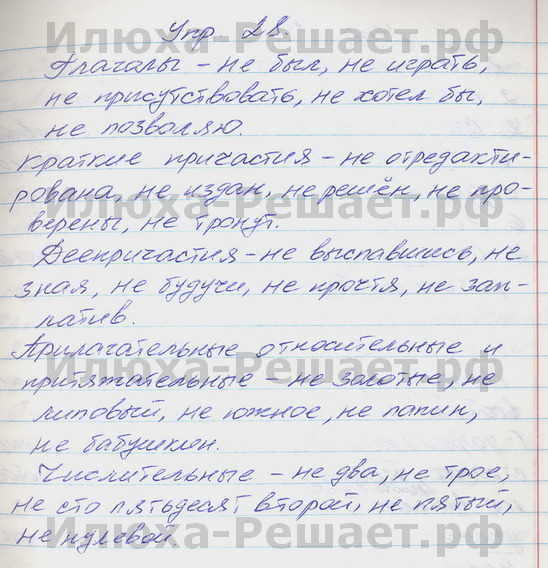 Илюха-Решает.рф
Упр 28.
Глаголы - не был, не играть,
не присутствовать, не хотел бы,
не позволяю.
Краткие причастия - не отредакти-
рована, не издан, не решён, не про-
верены, не тронут.
Илюха-Решает.рф
Деепричастия - не выспавшись, не
зная, не будучи, не прочтя, не зап-
латив.
Прилагательные относительные и
Илюха-Решает.рф
притяжательные - не золотые, не
липовый, не южное, не папин,
не бабушкин.
Числительные - не два, не трое,
не сто пятьдесят второй, не пятый,
не нулевой.
Илюха-Решает.рф